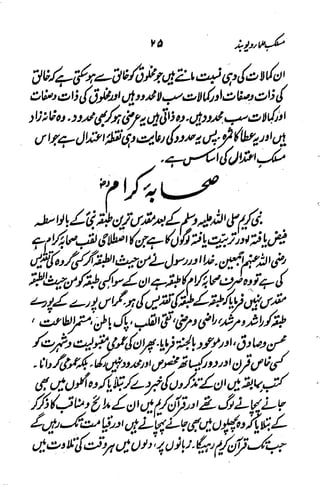 مسلک علماء دیوبند
۲۵
ان کمالات کی وہی نسبت مانتے ہیں جو مخلوق کو خالق سے ہو سکتی ہے کہ خالق
کی ذات و صفات اور کمالات سب لا محدود ہیں اور مخلوق کی ذات و صفات
اور کمالات سب محدود۔ وہ ذاتی ہیں یہ عرضی ہو کر بھی محدود۔ وہ خانہ زاد
ہیں اور یہ عطا کا ثمرہ۔ پس یہ حدود کی رعایت وہی نقطۂ اعتدال ہے جو اس
مسلک اعتدال کی اساس ہے۔
صحابۂ کرامؓ
نبی کریم صلی اللہ علیہ وسلم کے بعد مقدس ترین طبقہ نبیؐ کے بالواسطہ
فیض یافتہ اور تربیت یافتہ لوگوں کا ہے جن کا اصطلاحی لقب صحابۂ کرام ہے
رضی اللہ عنہم اجمعین۔ خدا اور رسول نے من حیث الطبقہ اگر کسی گروہ کی تقدیس
کی ہے تو وہ صرف صحابۂ کرام کا طبقہ ہے ان کے سوا کسی طبقہ کو من حیث الطبقہ
مقدس نہیں فرمایا کہ طبقہ کے طبقہ کی تقدیس کی ہو، مگر اس پورے کے پورے
طبقہ کو راشد و مرشد، راضی و مرضی، تقی القلب، پاک باطن، مستمر الطاعت،
محسن و صادق، اور موعود بالجنۃ فرمایا۔ پھر ان کی عمومی مقبولیت و شہرت کو
کسی خاص قرن اور دور کیساتھ مخصوص اور محدود نہیں رکھا۔ بلکہ عمومی گردانا۔
کتب سابقہ میں ان کے تذکروں کی خبر دے کر بتلایا کہ وہ اگلوں میں بھی
جانے پہچانے لوگ تھے اور قرآن کریم میں ان کے مدائح و مناقب کا ذکر کر
کے بتلایا کہ وہ پچھلوں میں بھی جانے پہچانے ہیں اور قیامت تک رہیں گے
جب تک قرآن کریم رہیگا۔ زبانوں پر، دلوں میں، ہر وقت کی تلاوت میں